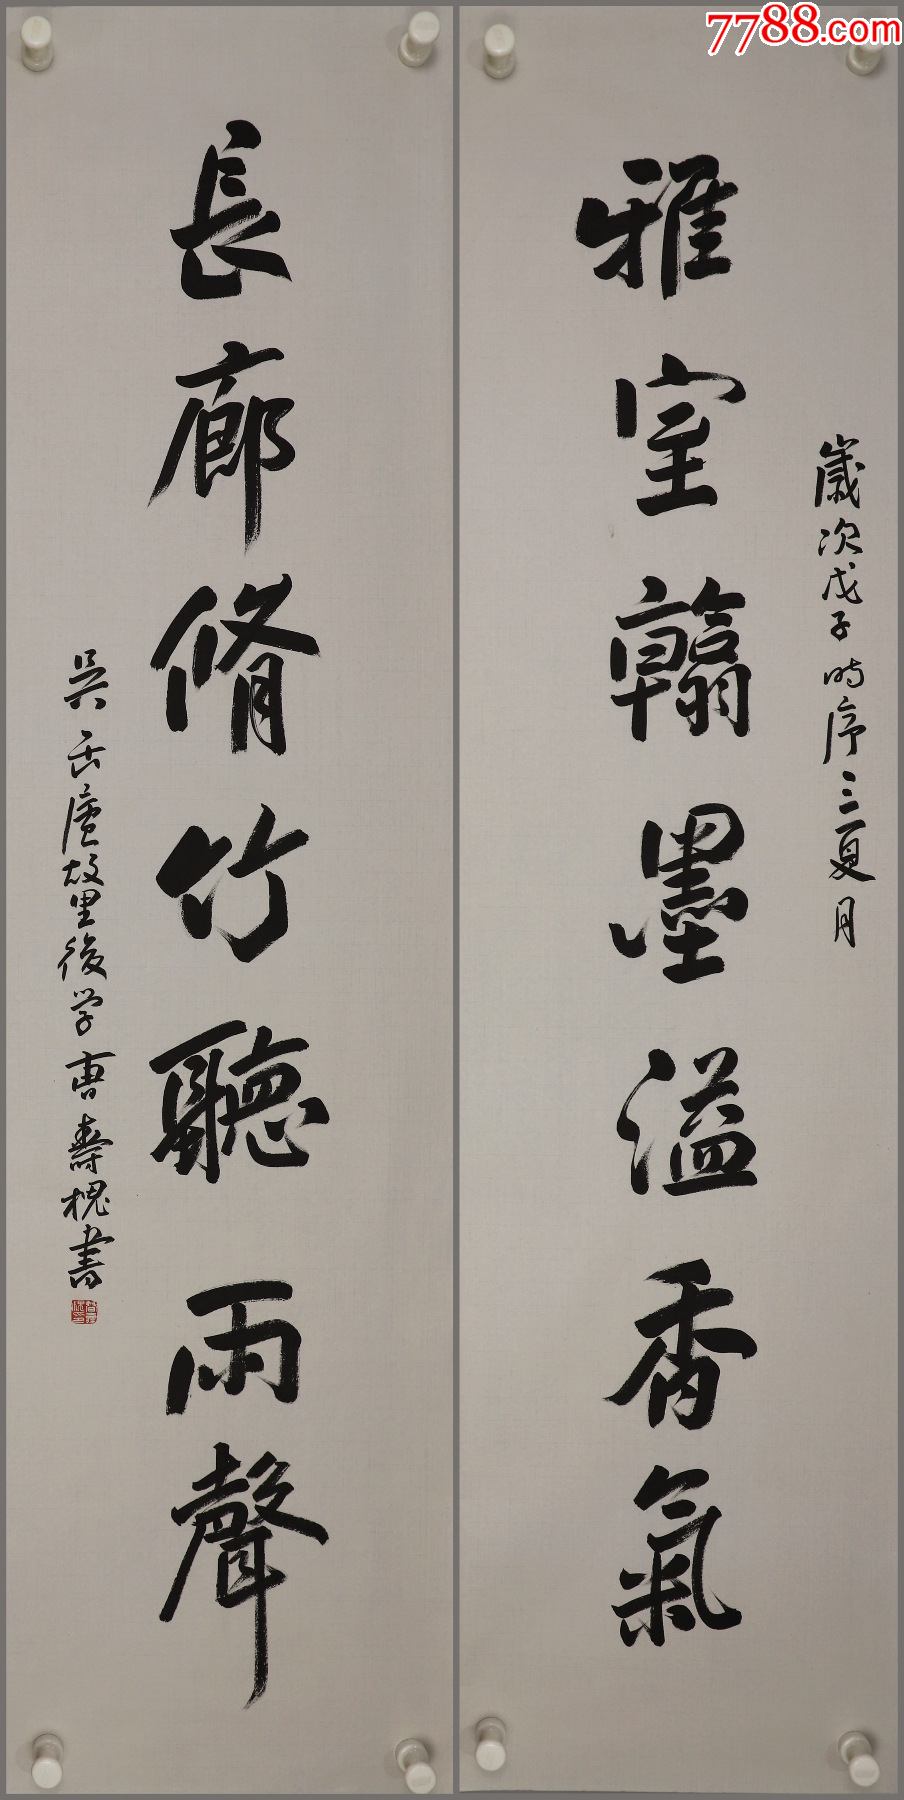 7788.com
歲次戊子時序三夏月
雅室翰墨溢香氣
長廊脩竹聽雨聲
吴缶廬故里後学曹壽槐書